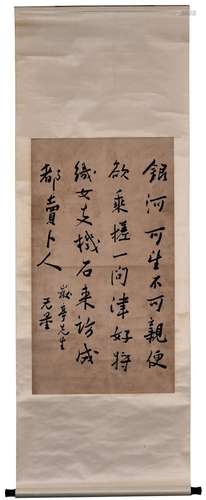 銀河可望不可親便
欲乘槎一問津好將
織女支機石来訪成
都賣卜人
亭先生
无量